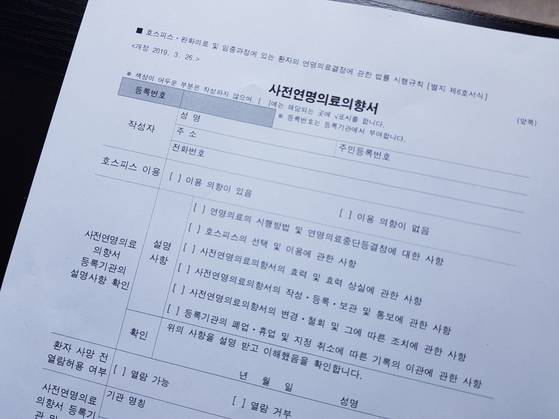 ■ 호스피스ㆍ완화의료 및 임종과정에 있는 환자의 연명의료결정에 관한 법률 시행규칙 [별지 제6호서식]
<개정 2019. 3. 26.>
사전연명의료의향서
※ 색상이 어두운 부분은 작성하지 않으며, [ ]에는 해당되는 곳에 √표시를 합니다. (앞쪽)
등록번호
※ 등록번호는 등록기관에서 부여합니다.
작성자
성 명
주민등록번호
주 소
전화번호
호스피스 이용
[ ] 이용 의향이 있음
[ ] 이용 의향이 없음
사전연명의료
의향서
등록기관의
설명사항 확인
설명
사항
[ ] 연명의료의 시행방법 및 연명의료중단등결정에 대한 사항
[ ] 호스피스의 선택 및 이용에 관한 사항
[ ] 사전연명의료의향서의 효력 및 효력 상실에 관한 사항
[ ] 사전연명의료의향서의 작성ㆍ등록ㆍ보관 및 통보에 관한 사항
[ ] 사전연명의료의향서의 변경ㆍ철회 및 그에 따른 조치에 관한 사항
[ ] 등록기관의 폐업ㆍ휴업 및 지정 취소에 따른 기록의 이관에 관한 사항
확인
위의 사항을 설명 받고 이해했음을 확인합니다.
년 월 일 성명
환자 사망 전
열람허용 여부
[ ] 열람 가능
[ ] 열람 거부
사전연명의료
의향서 등록기
관 및
기관 명칭